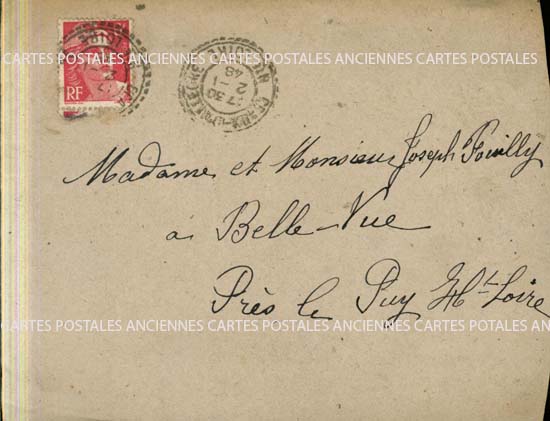 RF
17 30
2 - 1
48
CARTES POSTALES ANCIENNES CARTES POSTALES ANCIENNES CARTES POSTALES ANCIENNES
Madame et Monsieur Joseph Fouilly
à Belle-Vue
Près le Puy Hte Loire
CARTES POSTALES ANCIENNES CARTES POSTALES ANCIENNES CARTES POTALES ANCIENNES